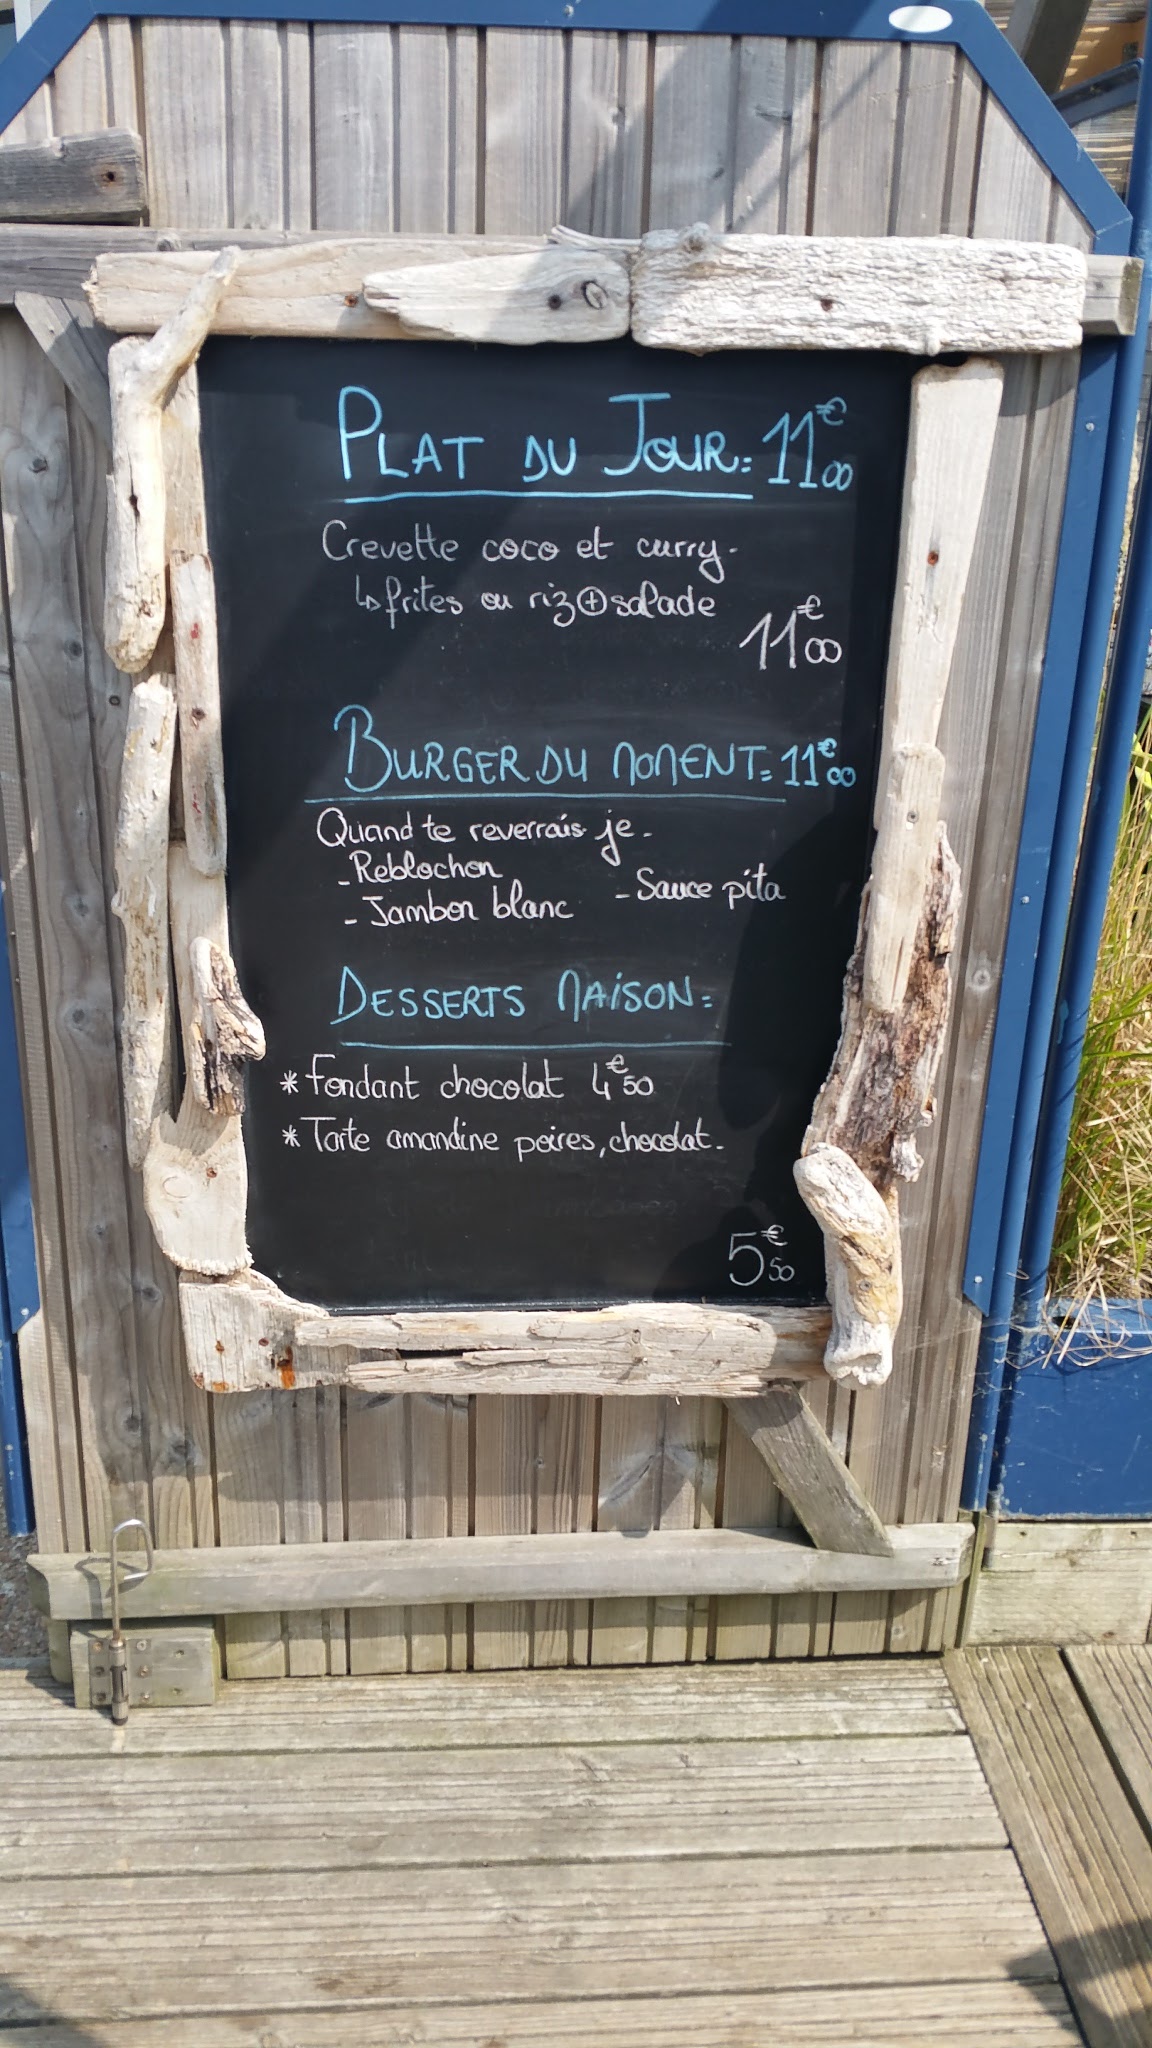 PLAT DU JOUR: 11€00
Crevette coco et curry.
↳ frites ou riz ⊕ salade
11€00
BURGER DU MOMENT: 11€00
Quand te reverrais je.
- Reblochon
- Sauce pita
- Jambon blanc
DESSERTS MAISON:
* Fondant chocolat 4€50
* Tarte amandine poires, chocolat.
5€50